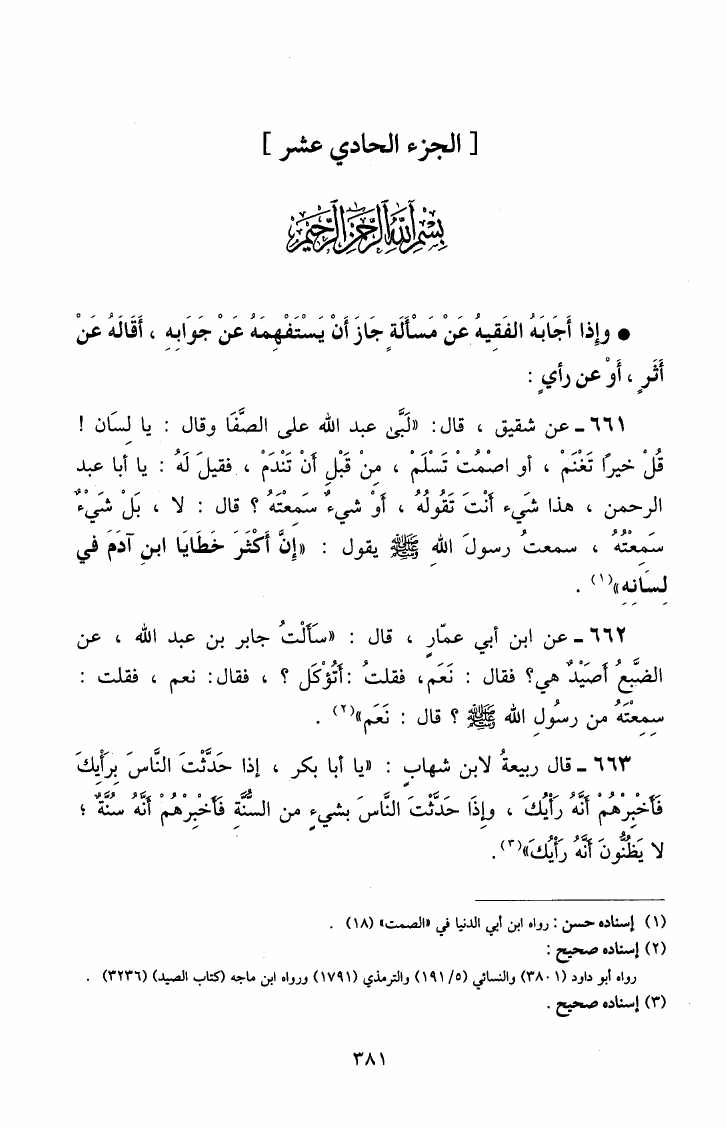 [ الجزء الحادي عشر ]
بِسْمِ اللَّهِ الرَّحْمَنِ الرَّحِيمِ
● وإِذا أَجابَهُ الفَقيهُ عَنْ مَسْأَلَةٍ جَازَ أَنْ يَسْتَفْهِمَهُ عَنْ جَوَابِهِ ، أَقَالَهُ عَنْ
أَثَرٍ ، أَوْ عن رأيٍ :
٦٦١ ـ عن شقيق ، قال: «لَبَّىٰ عبد الله على الصَّفَا وقال : يا لِسَان !
قُلْ خيرًا تَغْنَمْ ، أو اصْمُتْ تَسْلَمْ ، مِنْ قَبْلِ أَنْ تَنْدَمْ ، فقيلَ لَهُ : يا أبا عبد
الرحمن ، هذا شَيء أَنْتَ تَقُولُهُ ، أَوْ شيءٌ سَمِعتَهُ ؟ قال : لا ، بَلْ شَيْءٌ
سَمِعتُهُ ، سمعتُ رسولَ اللهِ ﷺ يقول : «إِنَّ أَكْثَرَ خَطَايَا ابنِ آدَمَ في
لِسَانِهِ»(١) .
٦٦٢ ـ عن ابن أبي عمّارٍ ، قال : «سأَلْتُ جابر بن عبد الله ، عن
الضَّبُعِ أَصَيْدٌ هي؟ فقال : نَعَم، فقلتُ :أَتُؤْكَل ؟ ، فقال: نعم ، فقلت :
سمِعتَهُ من رسُولِ الله ﷺ ؟ قال : نَعَم»(٢) .
٦٦٣ ـ قال ربيعةُ لابن شهابٍ : «يا أبا بكر ، إِذا حَدَّثْتَ النَّاسَ بِرَأْيِكَ
فَأَخْبِرْهُمْ أَنَّهُ رَأْيُكَ ، وإِذَا حَدَّثْتَ النَّاسَ بشيءٍ من السُّنَّةِ فَأَخْبِرْهُمْ أَنَّهُ سُنَّةٌ ؛
لا يَظُنُّونَ أَنَّهُ رَأْيُكَ»(٣).
(١) إسناده حسن : رواه ابن أبي الدنيا في «الصمت» (١٨) .
(٢) إسناده صحيح :
رواه أبو داود (٣٨٠١) والنسائي (١٩١/٥) والترمذي (١٧٩١) ورواه ابن ماجه (كتاب الصيد) (٣٢٣٦) .
(٣) إسناده صحيح .
٣٨١